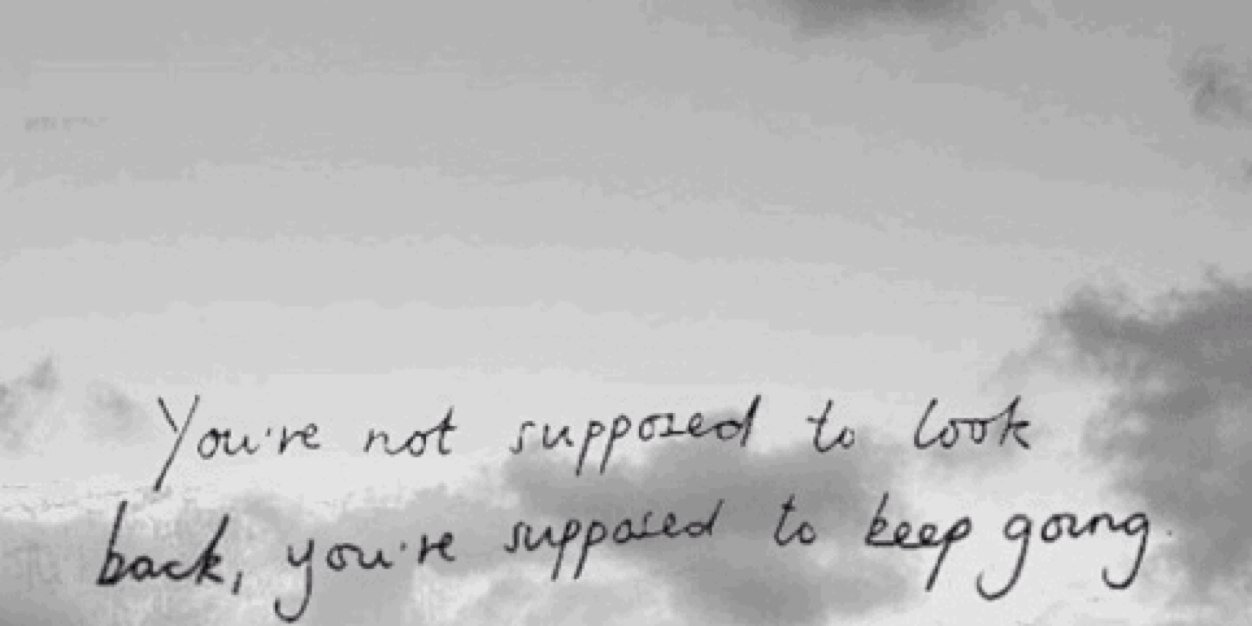 You're not supposed to look
back, you're supposed to keep going.